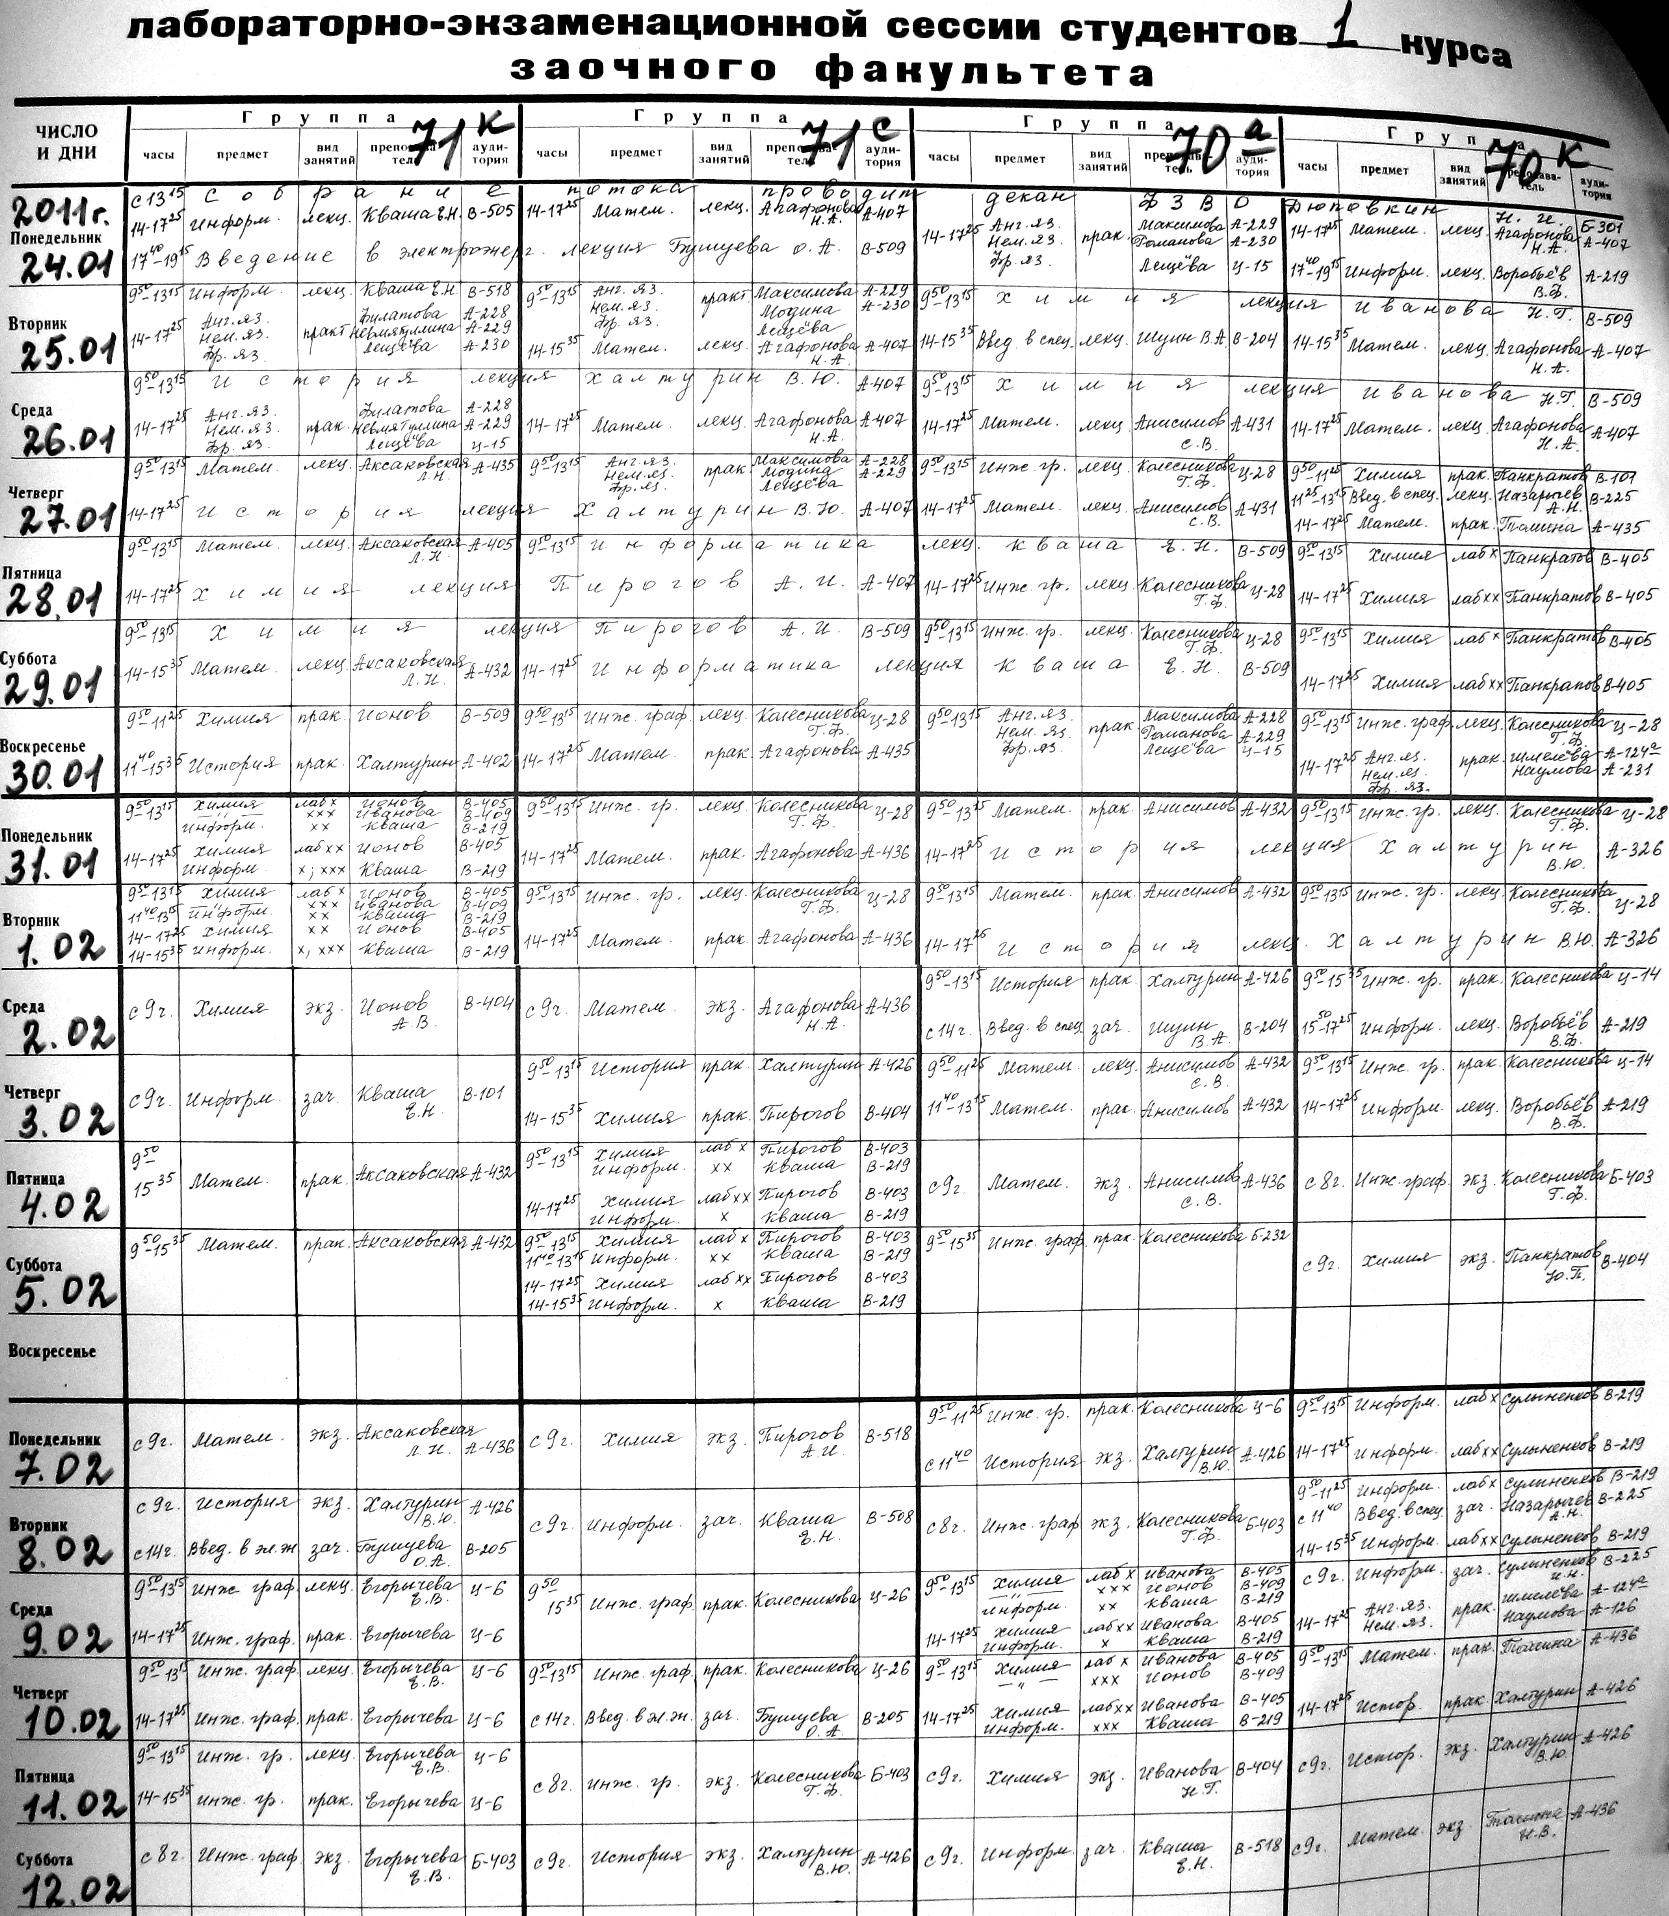 лабораторно-экзаменационной сессии студентов 1 курса
заочного факультета
ЧИСЛО И ДНИ
Группа 71к Группа 71с Группа 70а Группа 70к
часы предмет вид занятий преподаватель аудитория часы предмет вид занятий преподаватель аудитория часы предмет вид занятий преподаватель аудитория часы предмет вид занятий преподаватель аудитория
2011г. с 13 15 собрание потока проводит декан ФЗВО Дюповкин Н. И. Б-301
Понедельник 24.01
14-17 25 Информ. лекц. Кваша Е.Н. В-505
17 40-19 15 Введение в электроэнерг. лекция Бушуева О.А. В-509
14-17 25 Матем. лекц. Агафонова Н.А. А-407
14-17 25 Анг.яз. Нем.яз. Фр.яз. прак. Максимова Романова Лещёва А-229 А-230 Ц-15
14-17 25 Матем. лекц. Агафонова Н.А. А-407
17 40-19 15 Информ. лекц. Воробьёв В.Ф. А-219
Вторник 25.01
9 50-13 15 Информ. лекц. Кваша Е.Н. В-518
14-17 25 Анг.яз. Нем.яз. Фр.яз. практ. Филатова Невмятуллина Лещёва А-228 А-229 А-230
9 50-13 15 Анг.яз. Нем.яз. Фр.яз. практ. Максимова Модина Лещёва А-229 А-230
14-15 35 Матем. лекц. Агафонова Н.А. А-407
9 50-13 15 Химия лекция Иванова Н.Г. В-509
14-15 35 Введ. в спец. лекц. Шуин В.А. В-204
14-15 35 Матем. лекц. Агафонова Н.А. А-407
Среда 26.01
9 50-13 15 История лекция Халтурин В.Ю. А-407
14-17 25 Анг.яз. Нем.яз. Фр.яз. прак. Филатова Невмятуллина Лещёва А-228 А-229 Ц-15
14-17 25 Матем. лекц. Агафонова Н.А. А-407
9 50-13 15 Химия лекция Иванова Н.Г. В-509
14-17 25 Матем. лекц. Анисимова С.В. А-431
14-17 25 Матем. лекц. Агафонова Н.А. А-407
Четверг 27.01
9 50-13 15 Матем. лекц. Аксаковская Л.Н. А-435
14-17 25 История лекция Халтурин В.Ю. А-407
9 50-13 15 Анг.яз. Нем.яз. Фр.яз. прак. Максимова Модина Лещёва А-228 А-229
9 50-13 15 Инж. гр. лекц. Колесникова Г.Ф. Ц-28
14-17 25 Матем. лекц. Анисимов С.В. А-431
9 50-11 25 Химия прак. Панкратов В-101
11 25-13 15 Введ. в спец. лекц. Назарычев А.Н. В-225
14-17 25 Матем. прак. А-435
Пятница 28.01
9 50-13 15 Матем. лекц. Аксаковская Л.Н. А-405
14-17 25 Химия лекция Пирогов А.И. А-407
9 50-13 15 Информатика лекц. Кваша Е.Н. В-509
14-17 25 Инж. гр. лекц. Колесникова Г.Ф. Ц-28
9 50-13 15 Химия лаб х Панкратов В-405
14-17 25 Химия лаб хх Панкратов В-405
Суббота 29.01
9 50-13 15 Химия лекция Пирогов А.И. В-509
14-15 35 Матем. лекц. Аксаковская Л.Н. А-432
14-17 25 Информатика лекция Кваша Е.Н. В-509
9 50-13 15 Инж. гр. лекц. Колесникова Г.Ф. Ц-28
9 50-13 15 Химия лаб х Панкратов В-405
14-17 25 Химия лаб хх Панкратов В-405
Воскресенье 30.01
9 50-11 25 Химия прак. Ионов В-509
11 40-15 35 История прак. Халтурин А-402
9 50-13 15 Инж. граф. лекц. Колесникова Г.Ф. Ц-28
14-17 25 Матем. прак. Агафонова А-435
9 50-13 15 Анг.яз. Нем.яз. Фр.яз. прак. Максимова Романова Лещёва А-228 А-229 Ц-15
9 50-13 15 Инж. граф. лекц. Колесникова Г.Ф. Ц-28
14-17 25 Анг.яз. Нем.яз. Фр.яз. прак. Шмелёва Наумова А-124а А-231
Понедельник 31.01
9 50-13 15 Химия лаб х Ионов В-405
— " — ххх Иванова В-409
Информ. хх Кваша В-219
14-17 25 Химия лаб хх Ионов В-405
Информ. х; ххх Кваша В-219
9 50-13 15 Инж. гр. лекц. Колесникова Г.Ф. Ц-28
14-17 25 Матем. прак. Агафонова А-436
9 50-13 15 Матем. прак. Анисимов А-432
14-17 25 История лекция Халтурин В.Ю. А-326
9 50-13 15 Инж. гр. лекц. Колесникова Г.Ф. Ц-28
Вторник 1.02
9 50-13 15 Химия лаб х Ионов В-405
— " — ххх Иванова В-409
11 40-13 15 Информ. хх Кваша В-219
14-17 25 Химия хх Ионов В-405
14-15 35 Информ. х, ххх Кваша В-219
9 50-13 15 Инж. гр. лекц. Колесникова Г.Ф. Ц-28
14-17 25 Матем. прак. Агафонова А-436
9 50-13 15 Матем. прак. Анисимов А-432
14-17 25 История лекц. Халтурин В.Ю. А-326
9 50-13 15 Инж. гр. лекц. Колесникова Г.Ф. Ц-28
Среда 2.02
с 9 г. Химия экз. Ионов А.В. В-404
с 9 г. Матем. экз. Агафонова Н.А. А-436
9 50-13 15 История прак. Халтурин А-426
с 14 г. Введ. в спец. зач. Шуин В.А. В-204
9 50-15 35 Инж. гр. прак. Колесникова Ц-14
15 50-17 25 Информ. лекц. Воробьёв В.Ф. А-219
Четверг 3.02
с 9 г. Информ. зач. Кваша Е.Н. В-101
9 50-13 15 История прак. Халтурин А-426
14-15 35 Химия прак. Пирогов В-404
9 50-11 25 Матем. лекц. Анисимов С.В. А-432
11 40-13 15 Матем. прак. Анисимов А-432
9 50-13 15 Инж. гр. прак. Колесникова Ц-14
14-17 25 Информ. лекц. Воробьёв В.Ф. А-219
Пятница 4.02
9 50 15 35 Матем. прак. Аксаковская А-432
9 50-13 15 Химия лаб х Пирогов В-403
Информ. хх Кваша В-219
14-17 25 Химия лаб хх Пирогов В-403
Информ. х Кваша В-219
с 9 г. Матем. экз. Анисимова С.В. А-436
с 8 г. Инж. граф. экз. Колесникова Г.Ф. Б-403
Суббота 5.02
9 50-15 35 Матем. прак. Аксаковская А-432
9 50-13 15 Химия лаб х Пирогов В-403
11 40-13 15 Информ. хх Кваша В-219
14-17 25 Химия лаб хх Пирогов В-403
14-15 35 Информ. х Кваша В-219
9 50-15 35 Инж. граф. прак. Колесникова Б-232
с 9 г. Химия экз. Панкратов Ю.П. В-404
Воскресенье
Понедельник 7.02
с 9 г. Матем. экз. Аксаковская Л.Н. А-436
с 9 г. Химия экз. Пирогов А.И. В-518
9 50-11 25 Инж. гр. прак. Колесникова Ц-6
с 11 40 История экз. Халтурин В.Ю. А-426
9 50-13 15 Информ. лаб х Сулыненков В-219
14-17 25 Информ. лаб хх Сулыненков В-219
Вторник 8.02
с 9 г. История экз. Халтурин В.Ю. А-426
с 14 г. Введ. в эл.эн зач. Бушуева О.А. В-205
с 9 г. Информ. зач. Кваша Е.Н. В-508
с 8 г. Инж. граф экз. Колесникова Г.Ф. Б-403
9 50-11 25 Информ. лаб х Сулыненков В-219
с 11 40 Введ. в спец. зач. Назарычев А.Н. В-225
14-15 35 Информ. лаб хх Сулыненков В-219
Среда 9.02
9 50-13 15 Инж. граф. лекц. Егорычева Е.В. Ц-6
14-17 25 Инж. граф. прак. Егорычева Ц-6
9 50 15 35 Инж. граф. прак. Колесникова Ц-26
9 50-13 15 Химия лаб х Иванова В-405
— " — ххх Ионов В-409
Информ. хх Кваша В-219
14-17 25 Химия лаб хх Иванова В-405
Информ. х Кваша В-219
с 9 г. Информ. зач. Сулыненков И.Н. В-225
14-17 25 Анг.яз. Нем.яз. прак. Шмелёва Наумова А-124а А-126
Четверг 10.02
9 50-13 15 Инж. граф. лекц. Егорычева Е.В. Ц-6
14-17 25 Инж. граф. прак. Егорычева Ц-6
9 50-13 15 Инж. граф. прак. Колесникова Ц-26
с 14 г. Введ. в эл.эн. зач. Бушуева О.А. В-205
9 50-13 15 Химия лаб х Иванова В-405
— " — ххх Ионов В-409
14-17 25 Химия лаб хх Иванова В-405
Информ. ххх Кваша В-219
9 50-13 15 Матем. прак. А-436
14-17 25 Истор. прак. Халтурин А-426
Пятница 11.02
9 50-13 15 Инж. гр. лекц. Егорычева Е.В. Ц-6
14-15 35 Инж. гр. прак. Егорычева Ц-6
с 8 г. Инж. гр. экз. Колесникова Г.Ф. Б-403
с 9 г. Химия экз. Иванова Н.Г. В-404
с 9 г. Истор. экз. Халтурин В.Ю. А-426
Суббота 12.02
с 8 г. Инж. граф экз. Егорычева Е.В. Б-403
с 9 г. История экз. Халтурин В.Ю. А-426
с 9 г. Информ. зач. Кваша Е.Н. В-518
с 9 г. Матем. экз. Н.В. А-436